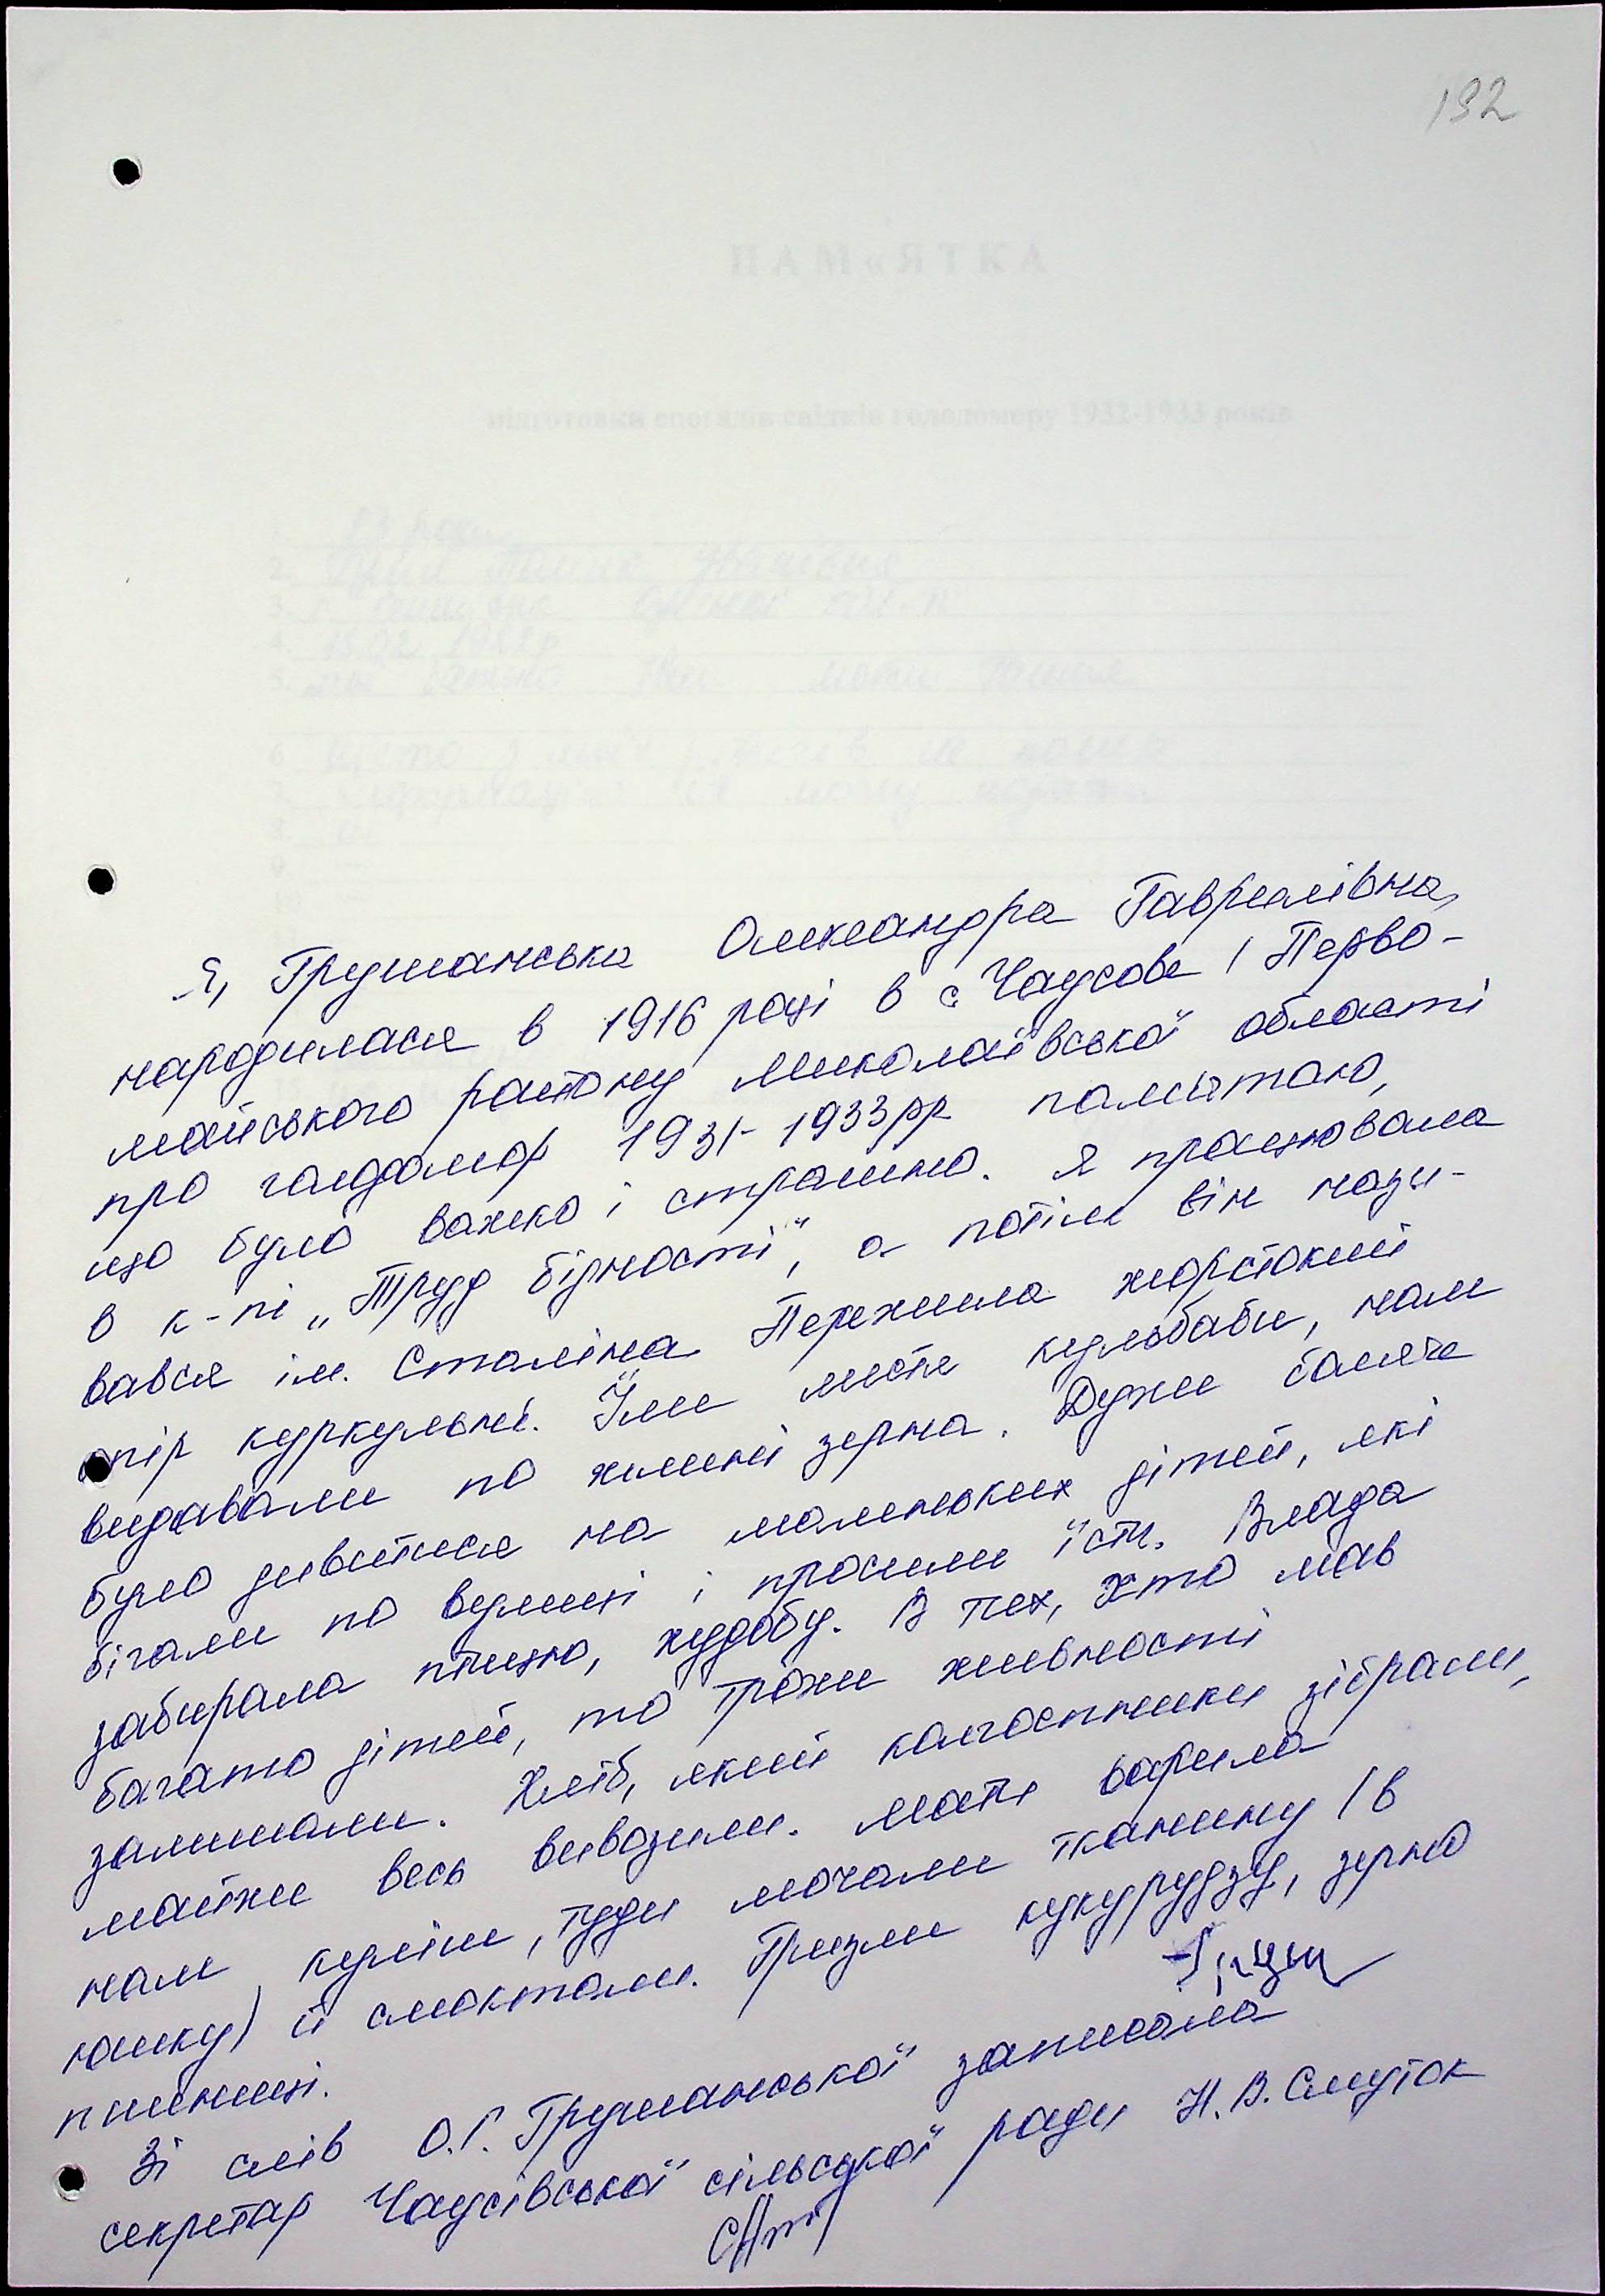 192
ПАМ«ЯТКА
підготовки спогадів свідків голодомору 1932-1933 років
Я, Грушанська Олександра Гаврилівна,
народилася в 1916 році в с Чаусове / Перво-
майського району Миколаївської області
про голодомор 1931-1933рр памятаю,
що було важко і страшно. Я працювала
в к-пі „Труд бідності", а потім він нази-
вався ім. Сталіна Пережила жорстокий
опір куркульні. Їли листя кульбаби, нам
видавали по жмені зерна. Дуже боляче
було дивитися на маленьких дітей, які
бігали по вулиці і просили їсти. Влада
забирала птицю, худобу. В тех, хто мав
багато дітей, то трохи живності
залишали. Хліб, який колгоспники зібрали,
майже весь вивозили. Мати варила
нам куліш, туди мочали тканину / в
юшку) й смоктали. Гризли кукурудзу, зерно
пшениці.
Зі слів О.Г. Грушанської записала
секретар Чаусівської сільської ради Н.В. Смуток